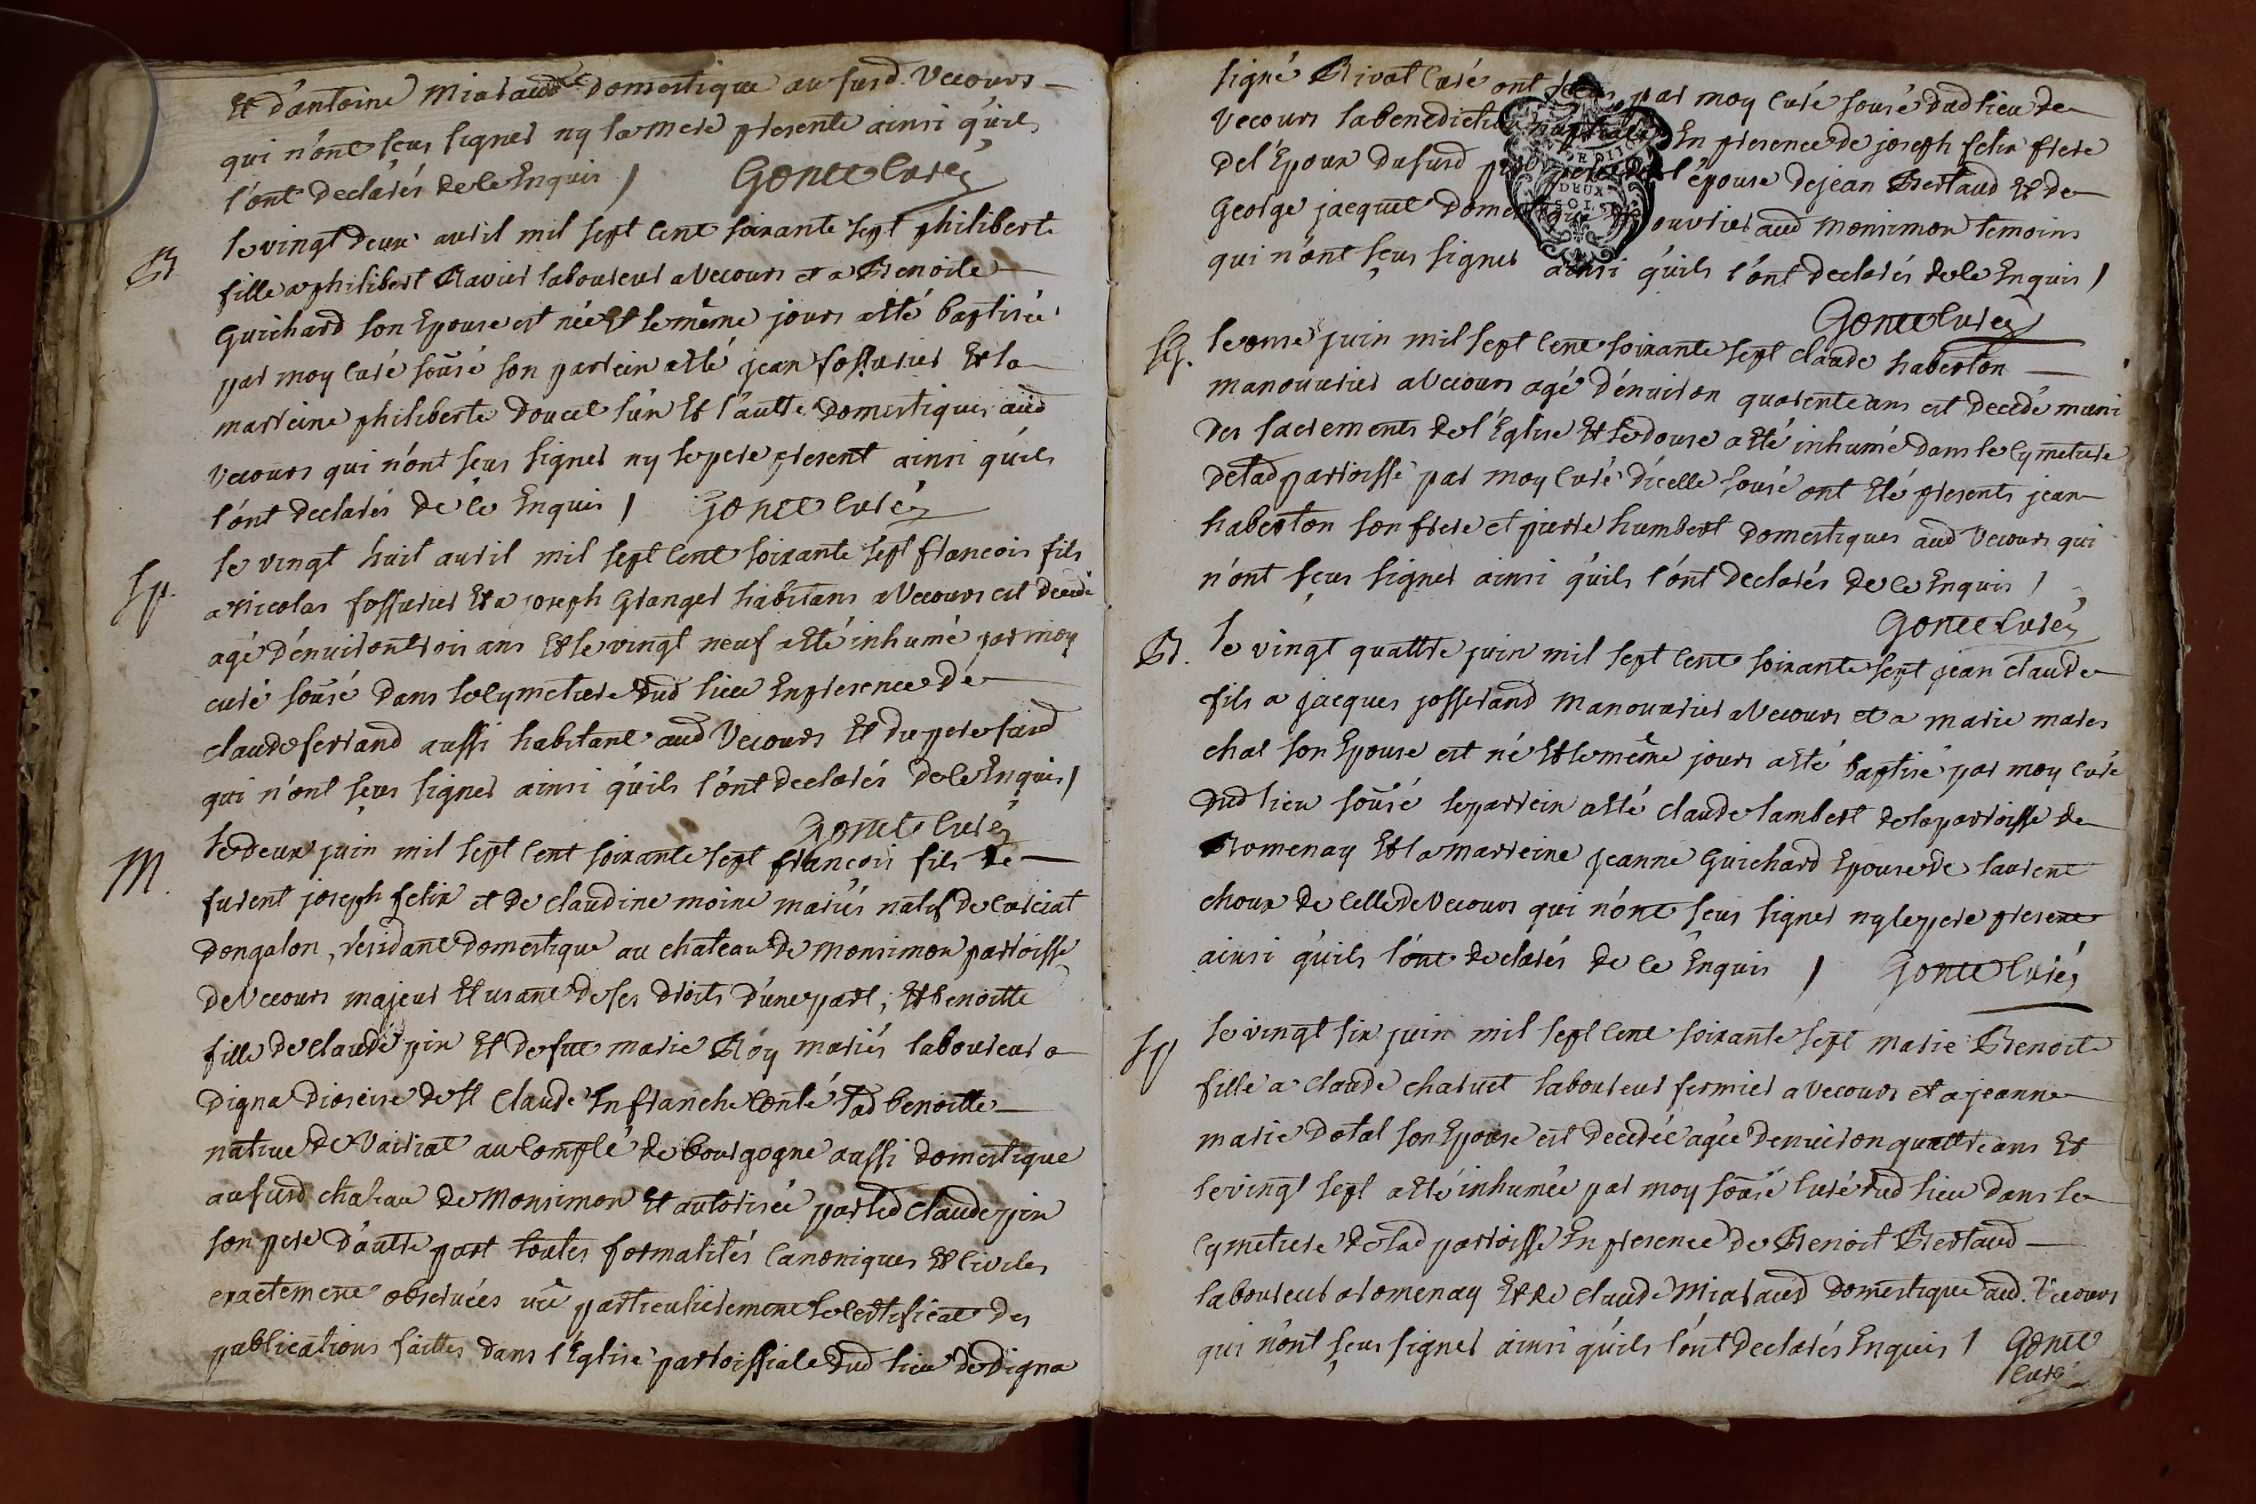 Et d'antoine Miraud domestique au susd. Vecours
qui n'ont sçeus signer ny la mere presente ainsi qu'ils
l'ont declarés de ce Enquis / Gonet Curé
B
le vingt deux auril mil sept cent soixante sept philiberte
fille a philibert Ravier laboureur a Vecours et a Benoite
Guichard son Epouse est née Et le même jours a été baptisée
par moy Curé sousé son parrein a été jean fossurier Et la
marreine philiberte Doucet l'un Et l'autre domestiques aud
Vecours qui n'ont sçeus signer ny le pere present ainsi qu'ils
l'ont declarés de ce Enquis / Gonet Curé
Sp.
le vingt huit auril mil sept cent soixante sept francois fils
a nicolas fossurier Et a joseph Granger habitans a Vecours est decedé
agé d'enuiron trois ans Et le vingt neuf a été inhumé par moy
curé sousé dans le cymetiere dud lieu En presence de
claude ferrand aussi habitant aud Vecours Et du pere susd
qui n'ont sçeus signer ainsi qu'ils l'ont declarés de ce Enquis /
Gonet Curé
M.
le deux juin mil sept cent soixante sept françois fils de
furent joseph felix et de claudine moine mariés natif de Corciat
dongalon, residant domestique au chateau de Monsimon parroisse
de Vecours majeur Et usant de ses droits d'une part, Et benoitte
fille de claude pin Et de fue marie Roy mariés laboureur a
digna diocèse de st Claude En franche Conté lad benoitte
natiue de Vairiat au Compté de bourgogne aussi domestique
au susd chateau de Monsimon Et autorisée par led Claude pin
son pere d'autre part toutes formalités Canoniques Et Civiles
exactement obseruées vû particulierement le certificat des
publications faittes dans l'Eglise parroissiale dud lieu de digna
signé Rivat Curé ont par moy Curé sousé dud lieu de
Vecours la benediction nuptiale En presence de joseph felix frere
de l'Epoux du susd pere de l'épouse de jean Bertaud Et de
George jacquet domestique ouvrier aud Monsimon temoins
qui n'ont sçeus signer ainsi qu'ils l'ont declarés de ce Enquis /
Gonet Curé
Sp.
le onse juin mil sept cent soixante sept claude haberton
manouurier a Vecours agé d'enuiron quarente ans est decedé muni
des sacrements de l'Eglise Et le douse a été inhumé dans le Cymetiere
de lad parroisse par moy Curé d'icelle sousé ont Eté presents jean
haberton son frere et pierre humbert domestiques aud Vecours qui
n'ont sçeus signer ainsi qu'ils l'ont declarés de ce Enquis /
Gonet Curé
B.
le vingt quattre juin mil sept cent soixante sept jean claude
fils a jacques josserand manouurier a Vecours et a marie mares
chal son Epouse est né Et le même jours a été baptisé par moy Curé
dud lieu sousé le parrein a été claude lambert de la parroisse de
Romenay Et la marreine jeanne Guichard Epouse de laurent
choux de Celle de Vecours qui n'ont sçeus signer ny le pere present
ainsi qu'ils l'ont declarés de ce Enquis / Gonet Curé
Sp
le vingt six juin mil sept cent soixante sept marie Benoite
fille a claude charuet laboureur fermier a Vecours et a jeanne
marie dotal son Epouse est decedée agée denuiron quattre ans Et
le vingt sept a été inhumée par moy sousé Curé dud lieu dans le
Cymetiere de lad parroisse En presence de Benoit Bertaud
laboureur a romenay Et de claude Miraud domestique aud. Vecours
qui n'ont sçeus signer ainsi qu'ils l'ont declarés Enquis / Gonet
Curé